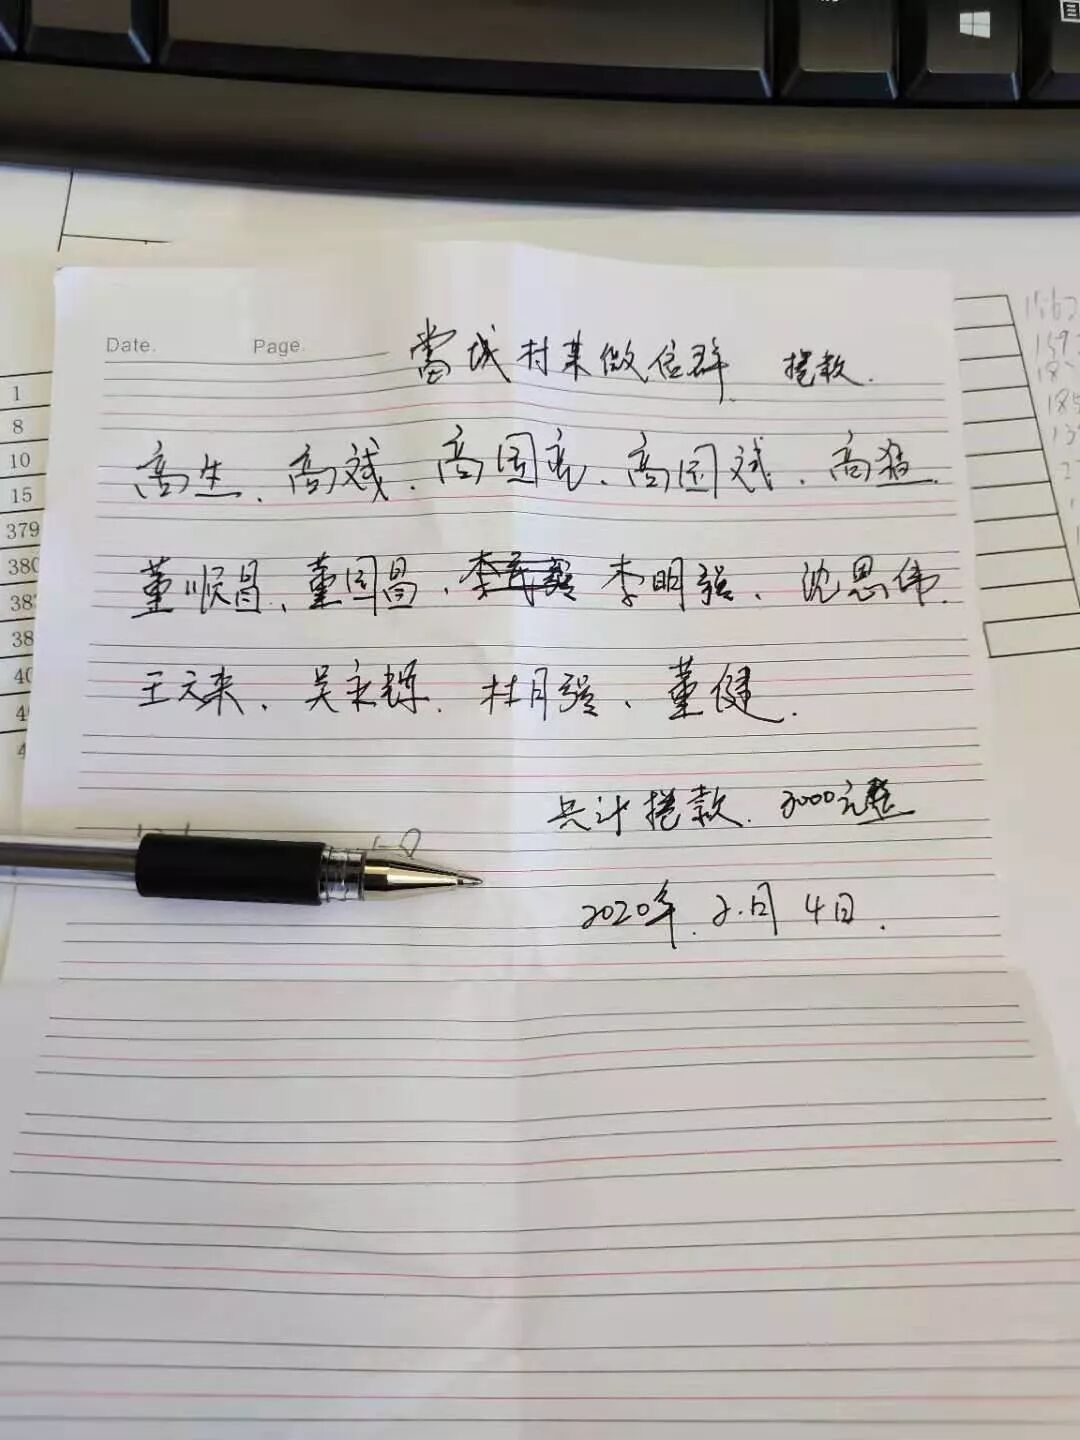 Date. Page.
當城村某微信群 捲款.
高生、高斌、高国亮、高国斌、高猛.
董顺昌、董国昌、李明强、沈思伟.
王文来、吴永 、杜月强、董健.
共计捲款. 3000元整
2020年.2.月4日.
1
8
10
15
379
380
38
38
40
4
4